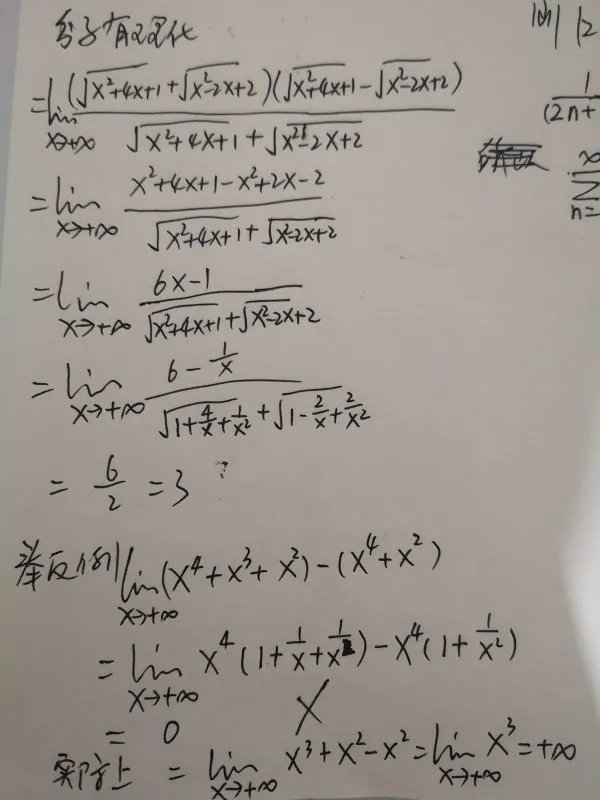 分子有理化
=lim x→+∞ (√x²+4x+1+√x²-2x+2)(√x²+4x+1-√x²-2x+2) / √x²+4x+1+√x²-2x+2
=lim x→+∞ x²+4x+1-x²+2x-2 / √x²+4x+1+√x²-2x+2
=lim x→+∞ 6x-1 / √x²+4x+1+√x²-2x+2
=lim x→+∞ 6-1/x / √1+4/x+1/x²+√1-2/x+2/x²
=6/2=3 ?
举反例 lim x→+∞ (x⁴+x³+x²)-(x⁴+x²)
=lim x→+∞ x⁴(1+1/x+1/x²)-x⁴(1+1/x²)
=0 ╳
实际上 =lim x→+∞ x³+x²-x²=lim x→+∞ x³=+∞
1
(2n+
∞
Σ
n=